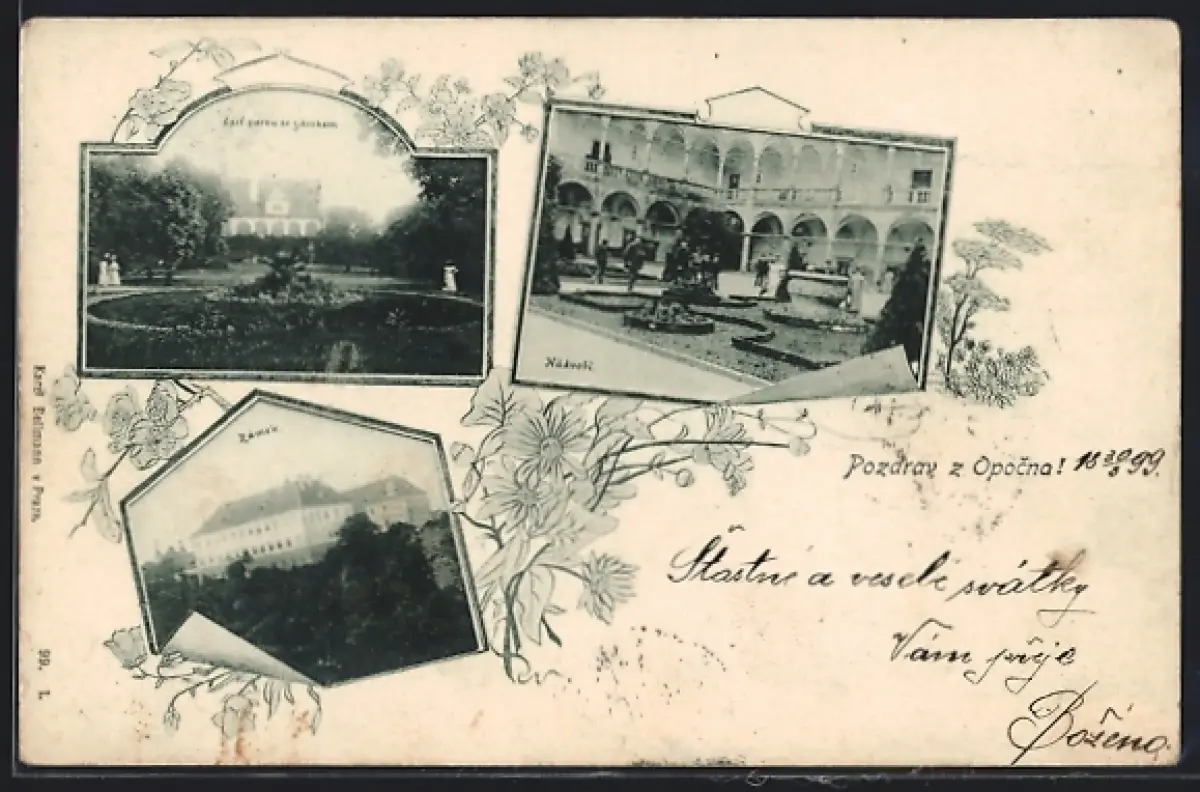 Část parku se zámkem
Nádvoří
Zámek
Pozdrav z Opočna! 18 30/3 99.
Šťastné a veselé svátky
Vám přeje
Božena.
Karel Bellmann v Praze.
99. 1.